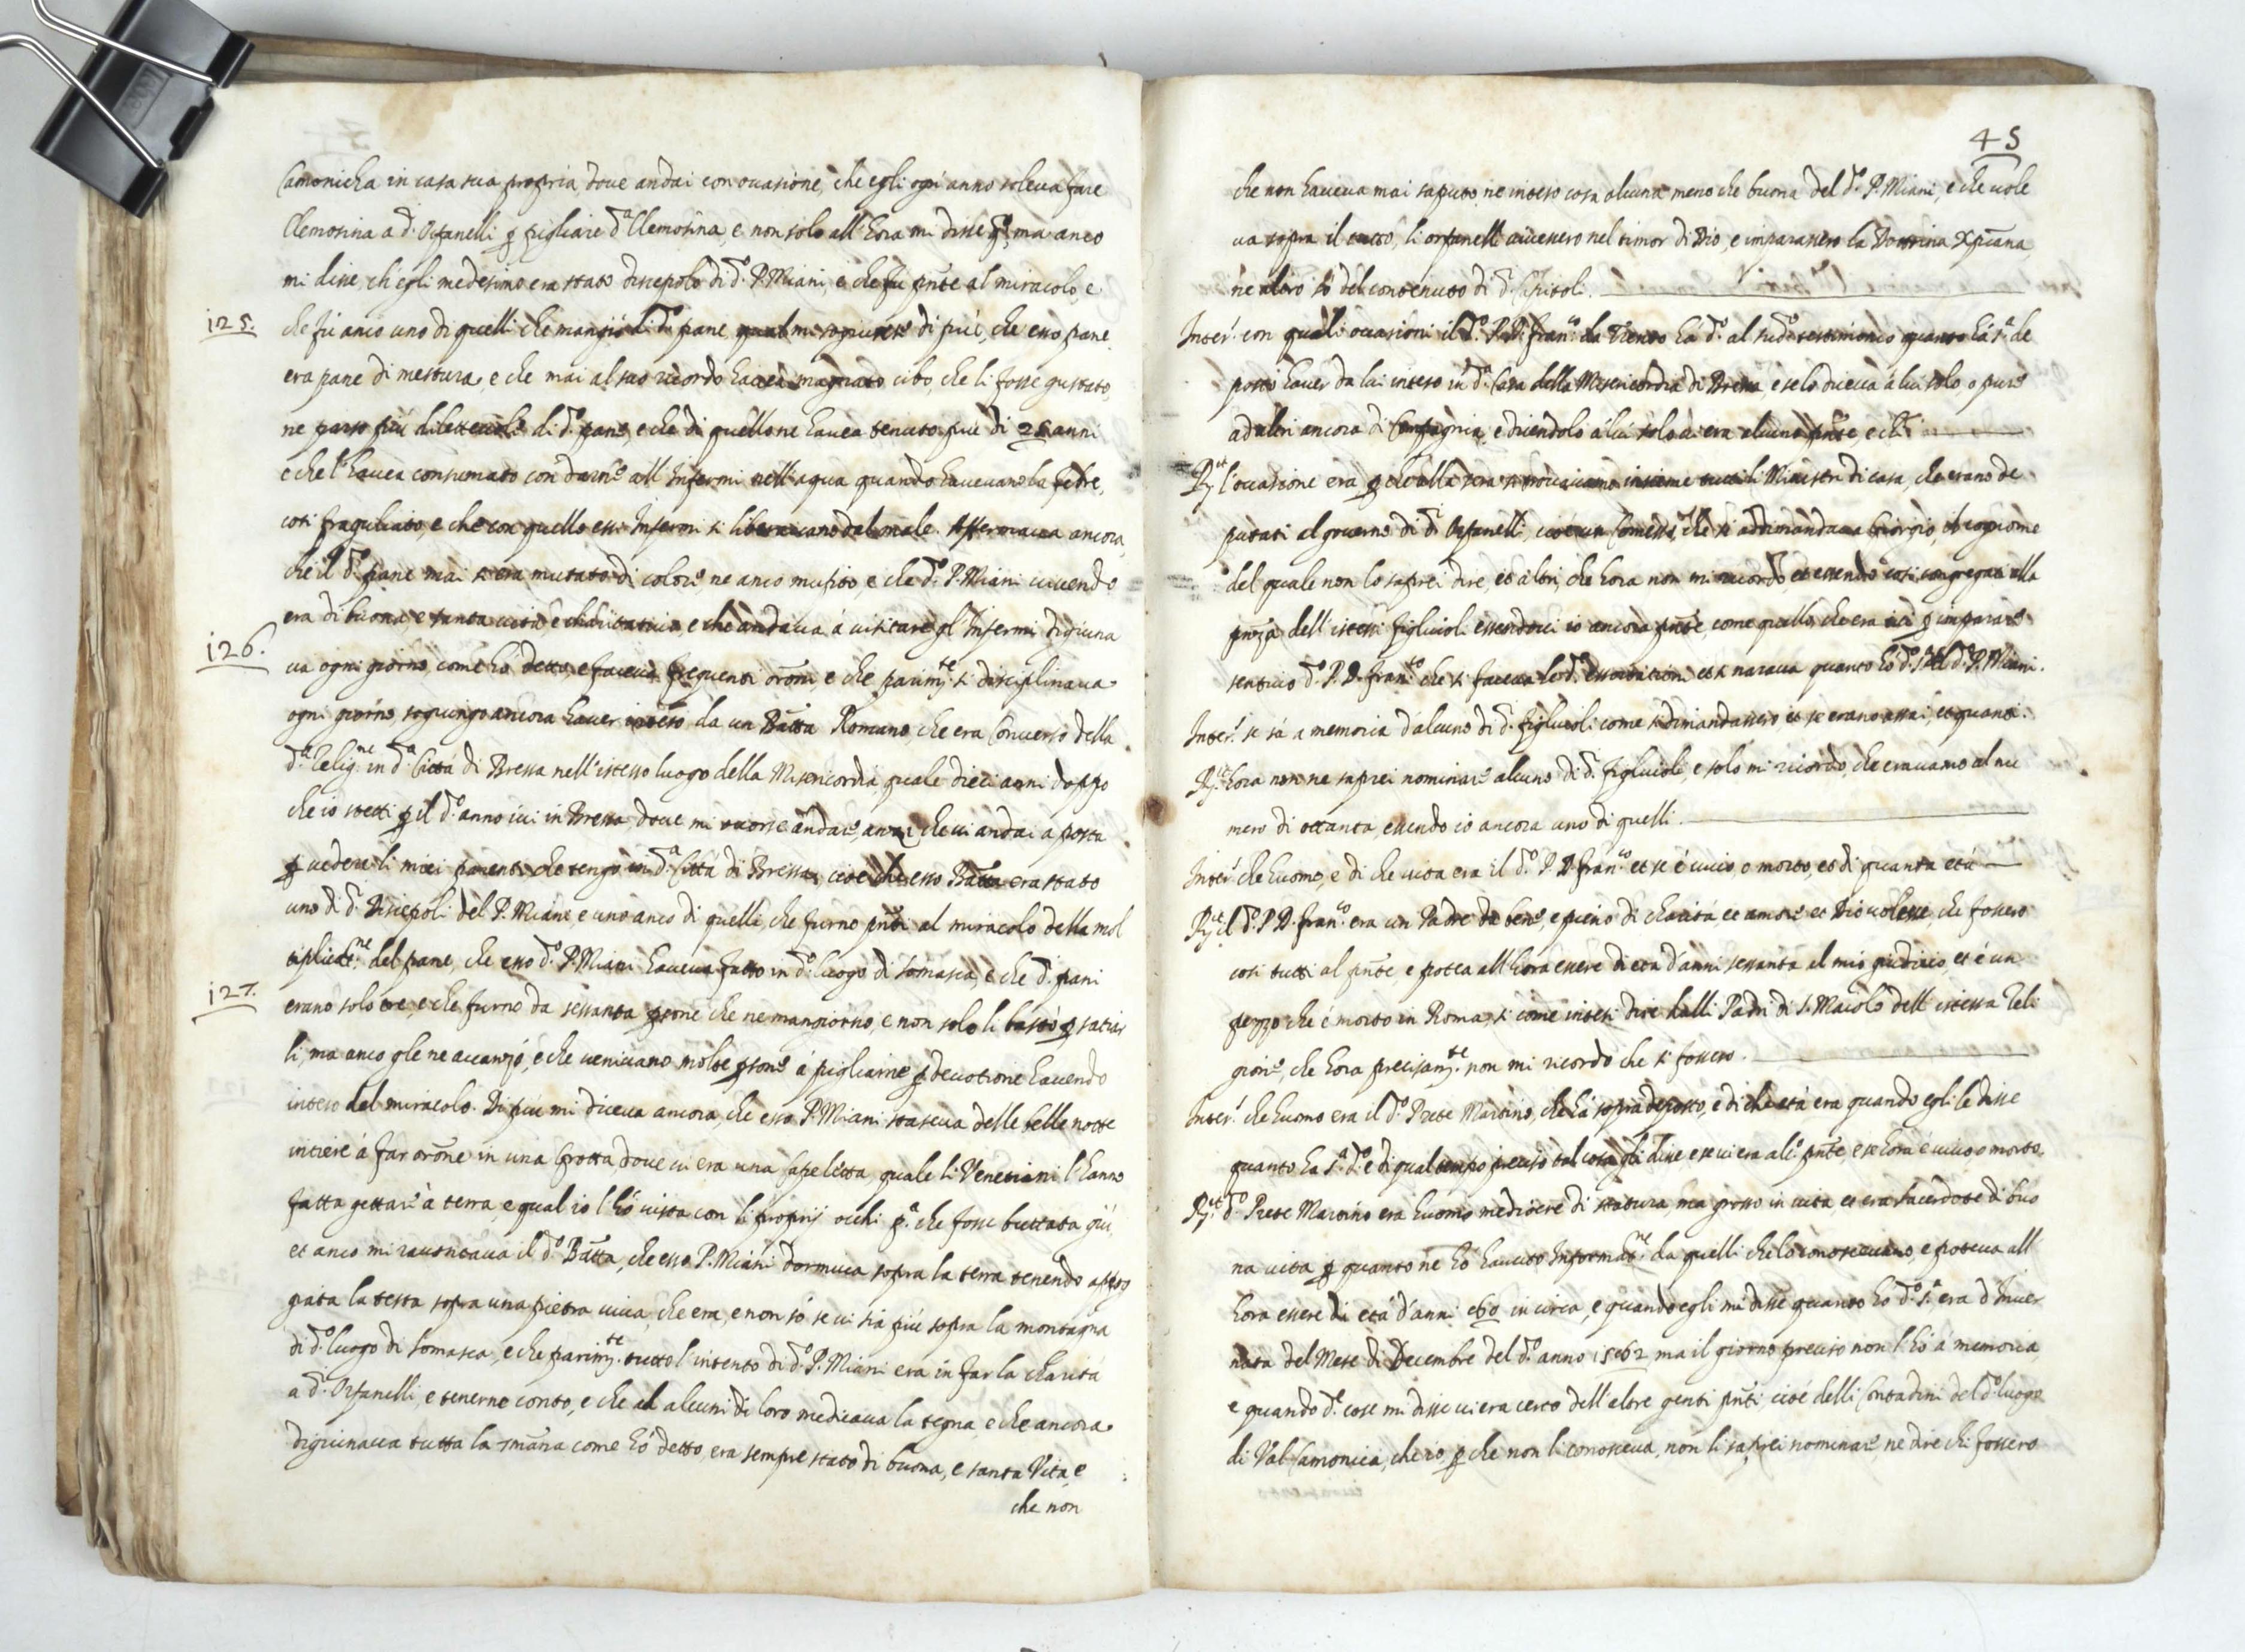 Camonicha in casa sua propria, dove andai con ocasione, che egli ogni anno soleva fare
Elemosina a d.i Orfanelli p pigliare d.a Elemosina, e non solo all'hora mi disse qsto, ma anco
mi disse, ch'egli medesimo era stato discepolo di d.o P. Miani, e che fu pnte al miracolo, e
125. che fù anco uno di quelli che mangiò di d.o pane, qual mi sogiunse di più, che esso pane
era pane di mestura, e che mai al suo ricordo havea magnato cibo, che li fosse gustato,
ne parso più dilettevole di d.o pane, e che di quello ne havea tenuto più di 25 anni
e che l'havea consumato con darne all'Infermi nell'aqua quando havevano la febre,
così fragugliato, e che con quello essi Infermi si liberavano dal male. Affermava ancora,
che il d.o pane mai si era mutato di colore, ne anco mufito, e che d.o P. Miani vivendo
era di buona, e santa vita, e charitativa, e che andava, à visitare gl'Infermi digiuna
126. va ogni giorno, come hò detto, e faceva frequenti orōni, e che parimte si disciplinava
ogni giorno, sogiungo ancora haver inteso da un Batta Romano, che era Converso della
d.a Relig.ne in d.a Città di Bressa nell'istesso luogo della Misericordia, quale dieci anni doppo
che io stetti p il d.o anno ivi in Bressa dove mi ocorse andare, anzi che vi andai a posta
p vedere li miei parenti che tengo in d.a Città di Bressa, cioè che esso Batta era stato
uno di d.i Discepoli del P. Miani, e uno anco di quelli, che furno pnti al miracolo della mol
tiplicat.ne del pane, che esso d.o P. Miani haveva fatto in d.o luogo di Somasca, e che d.i pani
127. erano solo tre, e che furno da sessanta psone che ne mangiorno, e non solo li bastò p satiar
li, ma anco gle ne avanzò, e che venivano molte psone à pigliarne p devotione havendo
inteso del miracolo. Di più mi diceva ancora, che esso P. Miani staseva delle belle notte
intiere à far orōne in una Grotta dove vi era una Capeletta, quale li Venetiani l'hanno
fatta gettare à terra, e qual io l'hò vista con li proprij occhi p.a che fosse buttata giù,
et anco mi racontava il d.o Batta, che esso P. Miani dormiva sopra la terra tenendo appog
giata la testa sopra una pietra viva, che era, e non sò se vi sia più sopra la montagna
di d.o luogo di Somasca, e che parimte tutto l'intento di d.o P. Miani era in far la charità
a d.i Orfanelli, e tenerne conto, e che ad alcuni di loro medicava la tegna, e che ancora
digiunava tutta la smāna come hò detto, era sempre stato di buona, e santa Vita, e
che non
45
che non haveva mai saputo, ne inteso cosa alcuna meno che buona del d.o P. Miani, e che vole
va sopra il tutto, li orfanelli vivessero nel timor di Dio, e imparassero la Dottrina Xpiana,
ne altro sò del contenuto di d.i Capitoli.
Inter.o con quali occasioni il d.o P. D. Fran.co da Trento hà d.o al sud.o testimonio quanto hà s.a de
posto haver da lui inteso in d.a Casa della Misericordia di Bressa, e se lo diceva à lui solo, o pure
ad altri ancora di Compagnia, e dicendolo à lui solo vi era alcuno pnte, e chi
R.et l'occasione era p che alla sera si trovavamo insieme tutti li Ministri di casa, che erano de
putati al governo di d.i Orfanelli, cioè un Comesso, che si adimandava Giorgio, il cognome
del quale non lo saprei dire, et altri, che hora non mi ricordo, et essendo così congregati alla
pnza dell'istessi figlioli essendovi io ancora pnte, come quello, che era ivi p imparare
sentivo d.o P. D. Fran.co che si faceva le d.e essortationi et si narava quanto hò d.o s.a del d.o P. Miani.
Inter.o se sà a memoria d'alcuno di d.i figlioli come si dimandassero et se erano assai, et quanti.
R.et hora non ne saprei nominare alcuno di d.i figlioli, e solo mi ricordo, che eravamo al nu
mero di ottanta, essendo io ancora uno di quelli.
Inter.o che huomo, e di che vita era il d.o P. D. Fran.co et se è vivo, o morto, et di quanta età
R.et il d.o P. D. Fran.co era un Padre da bene, e pieno di charità, et amore, et Dio volesse, che fossero
così tutti al pnte, e potea all'hora essere di età d'anni sessanta al mio giudicio, et è un
pezzo che è morto in Roma, si come intesi dire dalli Padri di S. Maiolo dell'istessa Reli
gione, che hora precisamte non mi ricordo che si fossero.
Inter.o che huomo era il d.o Prete Martino, che hà sopra deposto, e di che età era quando egli le disse
quanto hà s.a d.o e di qual tempo preciso tal cosa gli disse e se vi era alc.o pnte, e se hora è vivo, o morto.
R.et d.o Prete Martino era huomo mediocre di statura, ma grosso in vita, et era sacerdote di buo
na vita p quanto ne hò havuto Informat.ne da quelli che lo conoscevano, e poteva all'
hora essere di età d'anni 60 in circa, e quando egli mi disse quanto hò d.o s.a era d'Inver
nata del Mese di Decembre del d.o anno 1562 ma il giorno preciso non l'hò à memoria,
e quando d.e cose mi disse vi era certo dell'altre genti pnti cioè delli Contadini del d.o luogo
di Val Camonica, che io, p che non li conosceva, non li saprei nominare, ne dire chi fossero